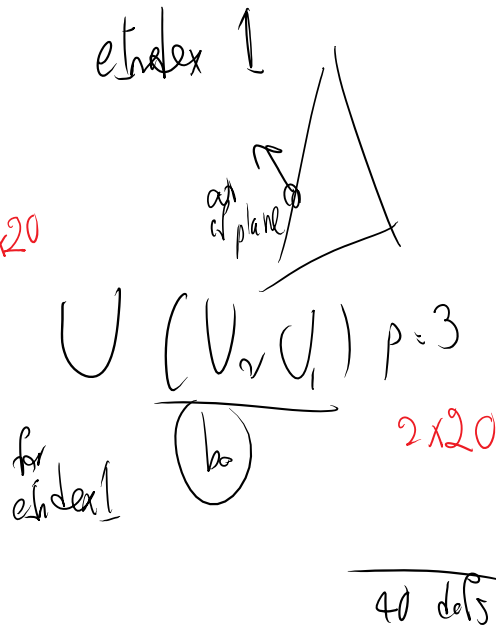 eindex 1
out
of plane
x20
U (U₂, U₁) p = 3
2x20
bo
for
eindex1
40 dofs